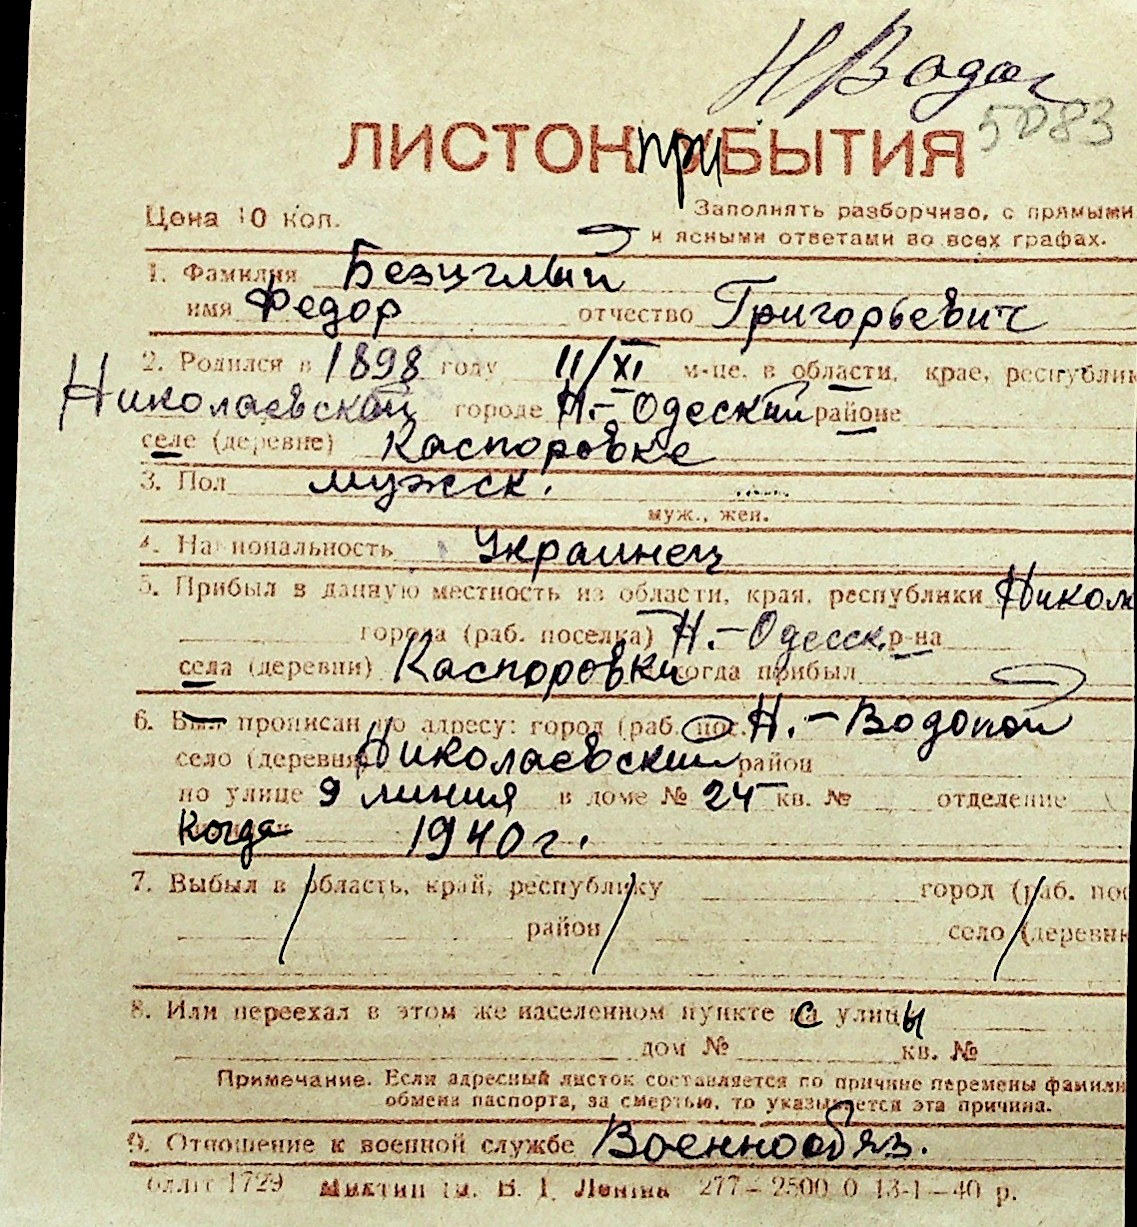 Н Водоп
5083
ЛИСТОК при БЫТИЯ
Цена 10 коп. Заполнять разборчиво, с прямыми
и ясными ответами во всех графах.
1. Фамилия Безуглый
имя Федор отчество Григорьевич
2. Родился в 1898 году 11/XI м-це, в области, крае, республик
Николаевской городе Н.-Одеский районе
селе (деревне) Каспоровке
3. Пол мужск.
муж., жен.
4. Национальность Украинец
5. Прибыл в данную местность из области, края, республики Никол
города (раб. поселка) Н.-Одесск. р-на
села (деревни) Каспоровки когда прибыл
6. Был прописан по адресу: город (раб. пос. Н.-Водопой
село (деревня Николаевский район
по улице 9 линия в доме № 24 кв. № отделение
Когда 1940 г.
7. Выбыл в область, край, республику город (раб. пос
район село (деревн
8. Или переехал в этом же населенном пункте с улицы
дом № кв. №
Примечание. Если адресный листок составляется по причине перемены фамили
обмена паспорта, за смертью, то указывается эта причина.
9. Отношение к военной службе Военнообяз.
1729 В. І. Леніна 277–2500 0 13-1–40 р.